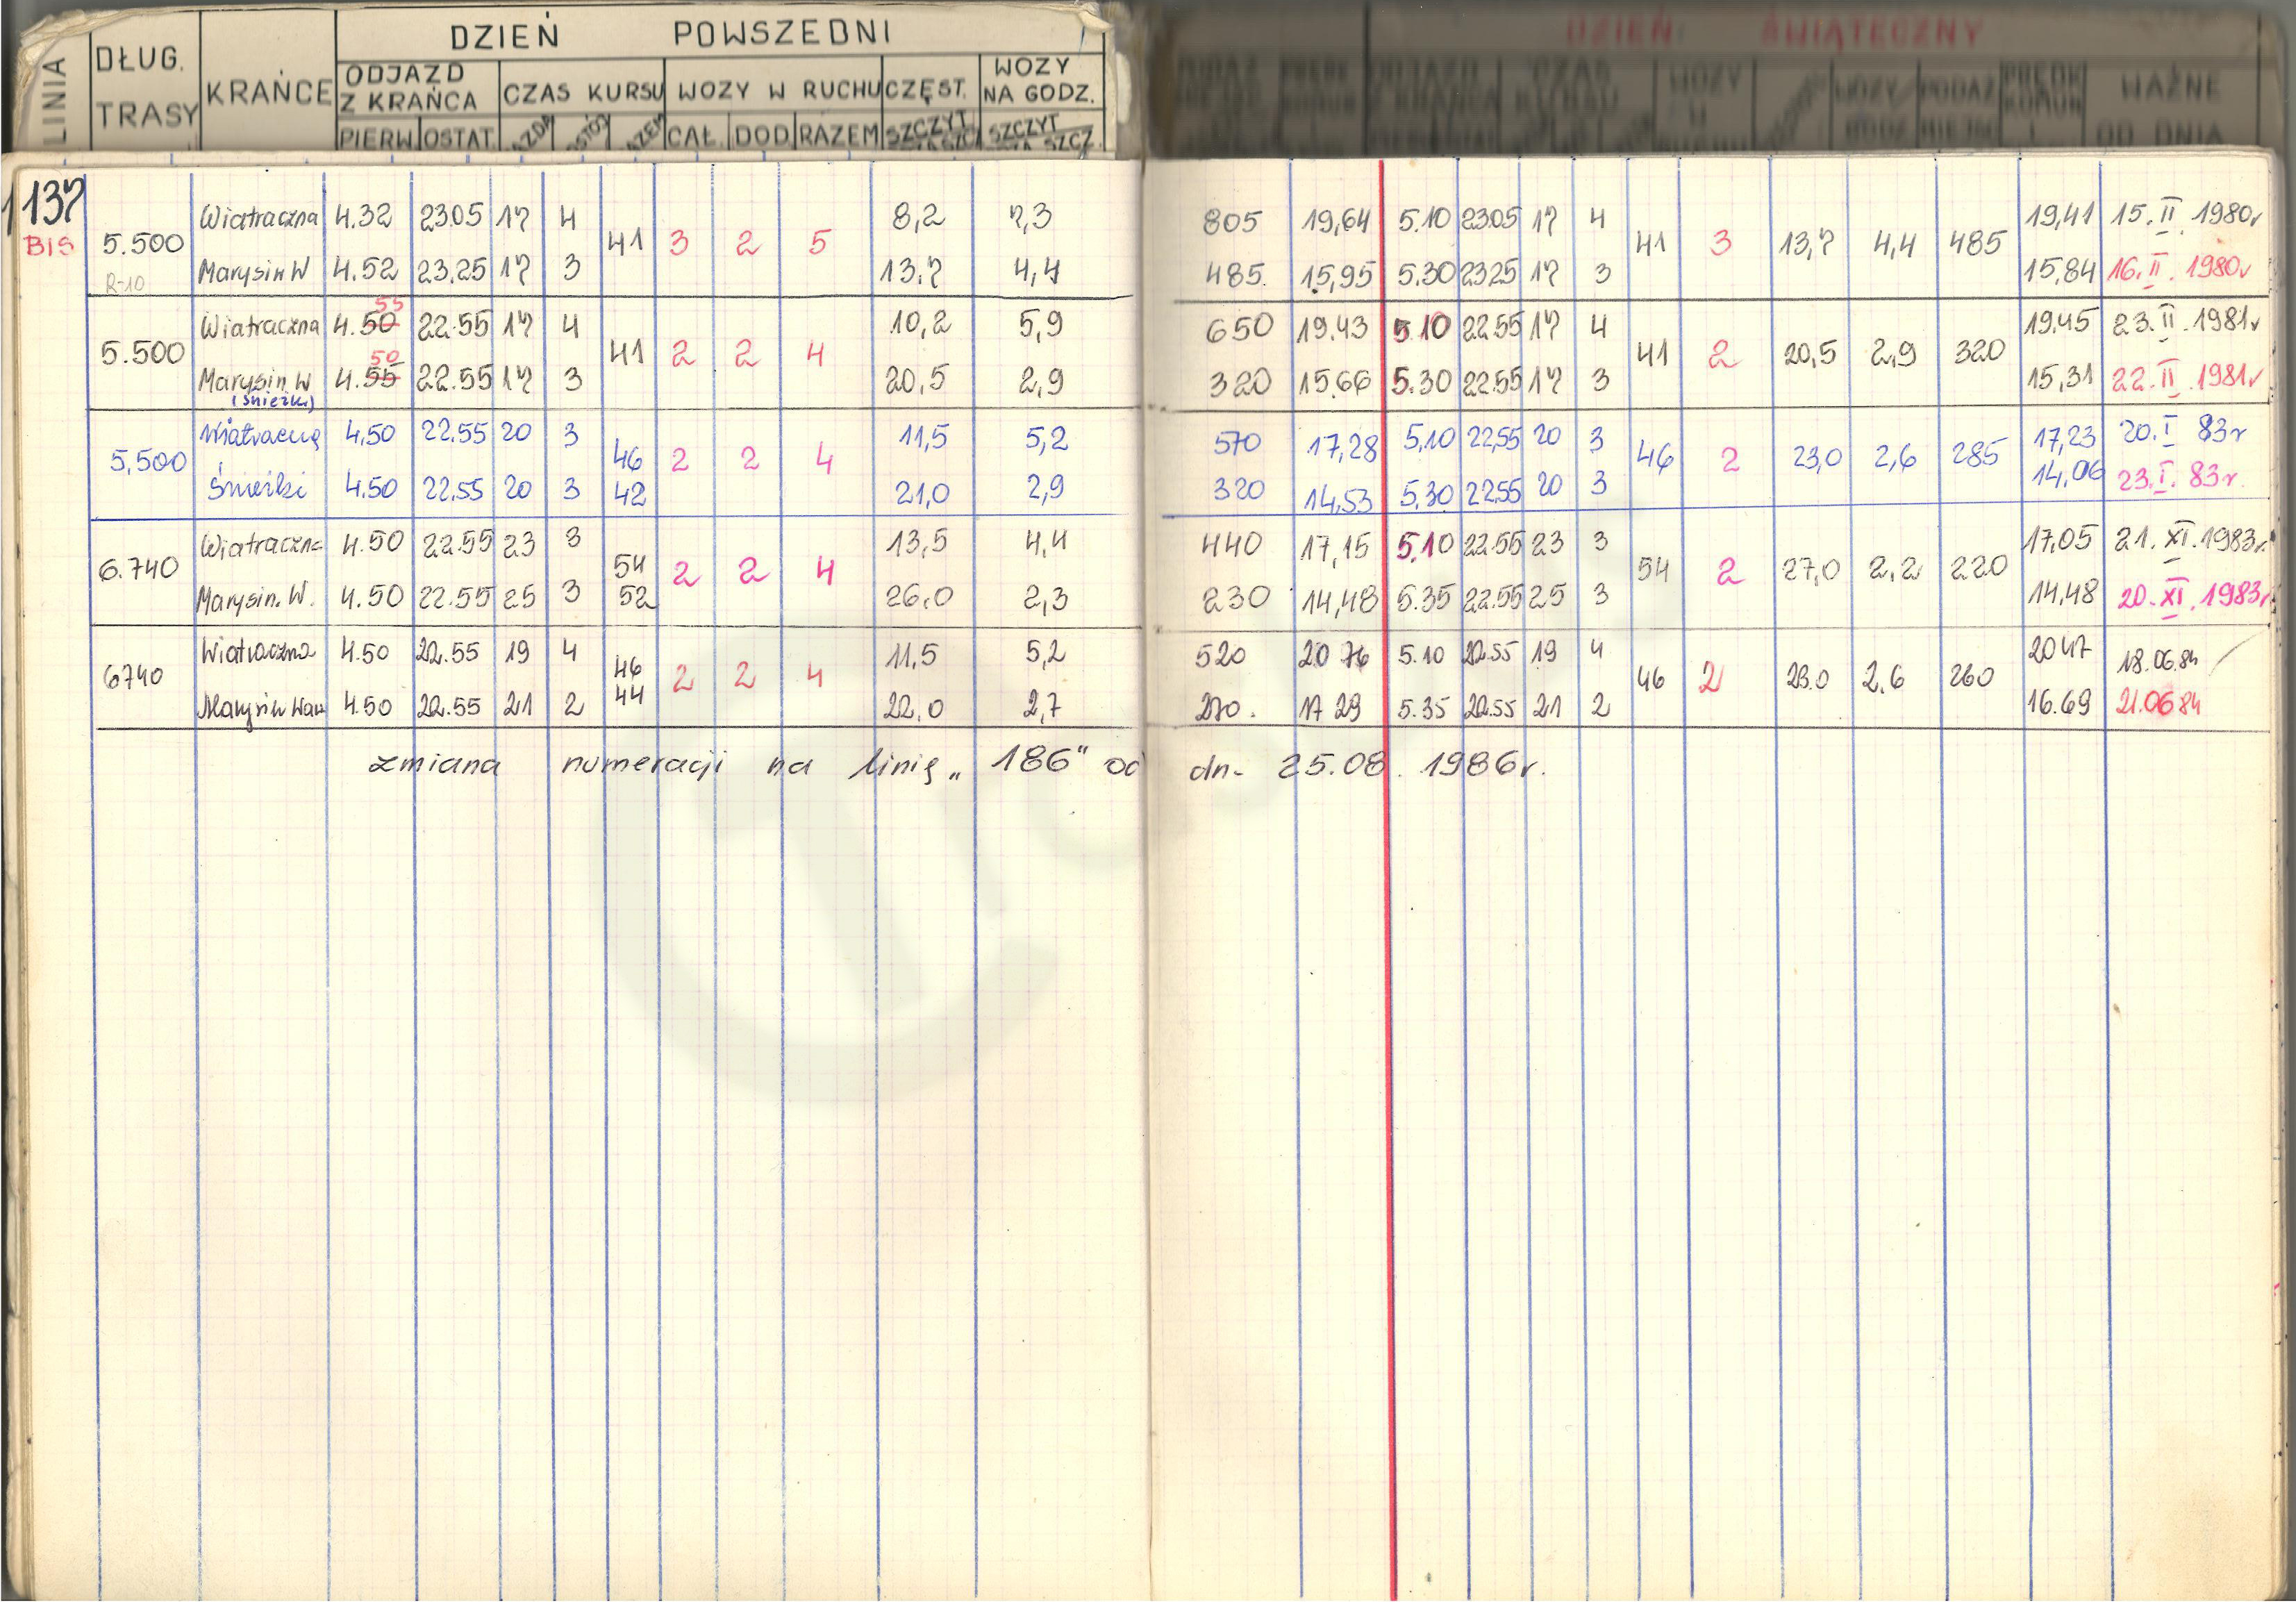 DZIEŃ POWSZEDNI DZIEŃ ŚWIĄTECZNY
LINIA DŁUG. TRASY KRAŃCE ODJAZD Z KRAŃCA CZAS KURSU WOZY W RUCHU CZĘST. WOZY NA GODZ. WAŻNE OD DNIA
PIERW OSTAT. CAŁ. DOD RAZEM SZCZYT SZCZYT
137 Wiatraczna 4.32 23.05 17 4 8,2 7,3 805 19,64 5.10 23.05 17 4 19,41 15.II.1980r
BIS 5.500 41 3 2 5 41 3 13,7 4,4 485
R-10 Marysin W 4.52 23.25 17 3 13,7 4,4 485. 15,95 5.30 23.25 17 3 15,84 16.II.1980r
55
Wiatraczna 4.50 22.55 17 4 10,2 5,9 650 19.43 5.10 22.55 17 4 19,45 23.II.1981r
5.500 50 41 2 2 4 41 2 20,5 2,9 320
Marysin W 4.55 22.55 17 3 20,5 2,9 320 15.66 5.30 22.55 17 3 15,31 22.II.1981r
(Śnieżki)
Wiatraczną 4,50 22.55 20 3 11,5 5,2 570 17,28 5,10 22,55 20 3 17,23 20.I 83r
5,500 46 2 2 4 46 2 23,0 2,6 285
Śnieżki 4.50 22.55 20 3 42 21,0 2,9 320 14,53 5,30 22.55 20 3 14,06 23.I. 83r.
Wiatraczna 4.50 22.55 23 3 13,5 4,4 440 17,15 5.10 22.55 23 3 17,05 21.XI.1983r.
6.740 54 2 2 4 54 2 27,0 2,2 220
Marysin. W. 4.50 22.55 25 3 52 26,0 2,3 230 14,48 5.35 22.55 25 3 14,48 20.XI.1983r
Wiatraczna 4.50 22.55 19 4 11,5 5,2 520 20 76 5.10 22.55 19 4 20 47 18.06.84
6740 46 2 2 4 46 2 23.0 2.6 260
Marysin Waw 4.50 22.55 21 2 44 22,0 2,7 270. 17 29 5.35 22.55 21 2 16.69 21.06 84
zmiana numeracji na linię „186" od dn. 25.08. 1986r.